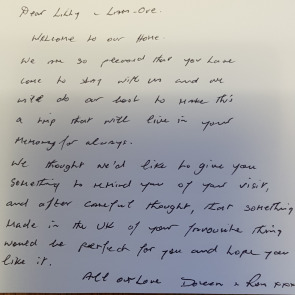 Dear Libby
Welcome to our Home.
We are so pleased that you have
come to stay with us and we
will do our best to make this
a trip that will live in your
memory for always.
We thought we'd like to give you
something to remind you of your visit,
and after careful thought, that something
made in the UK of your favourite thing
would be perfect for you and hope you
like it.
All our Love Doreen x Ron xxx